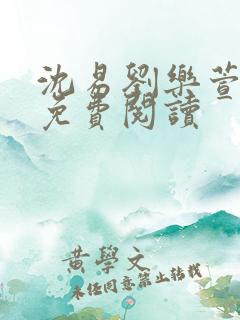 沈易劉樂萱
免費閱讀
黃學文
未經同意禁止轉載